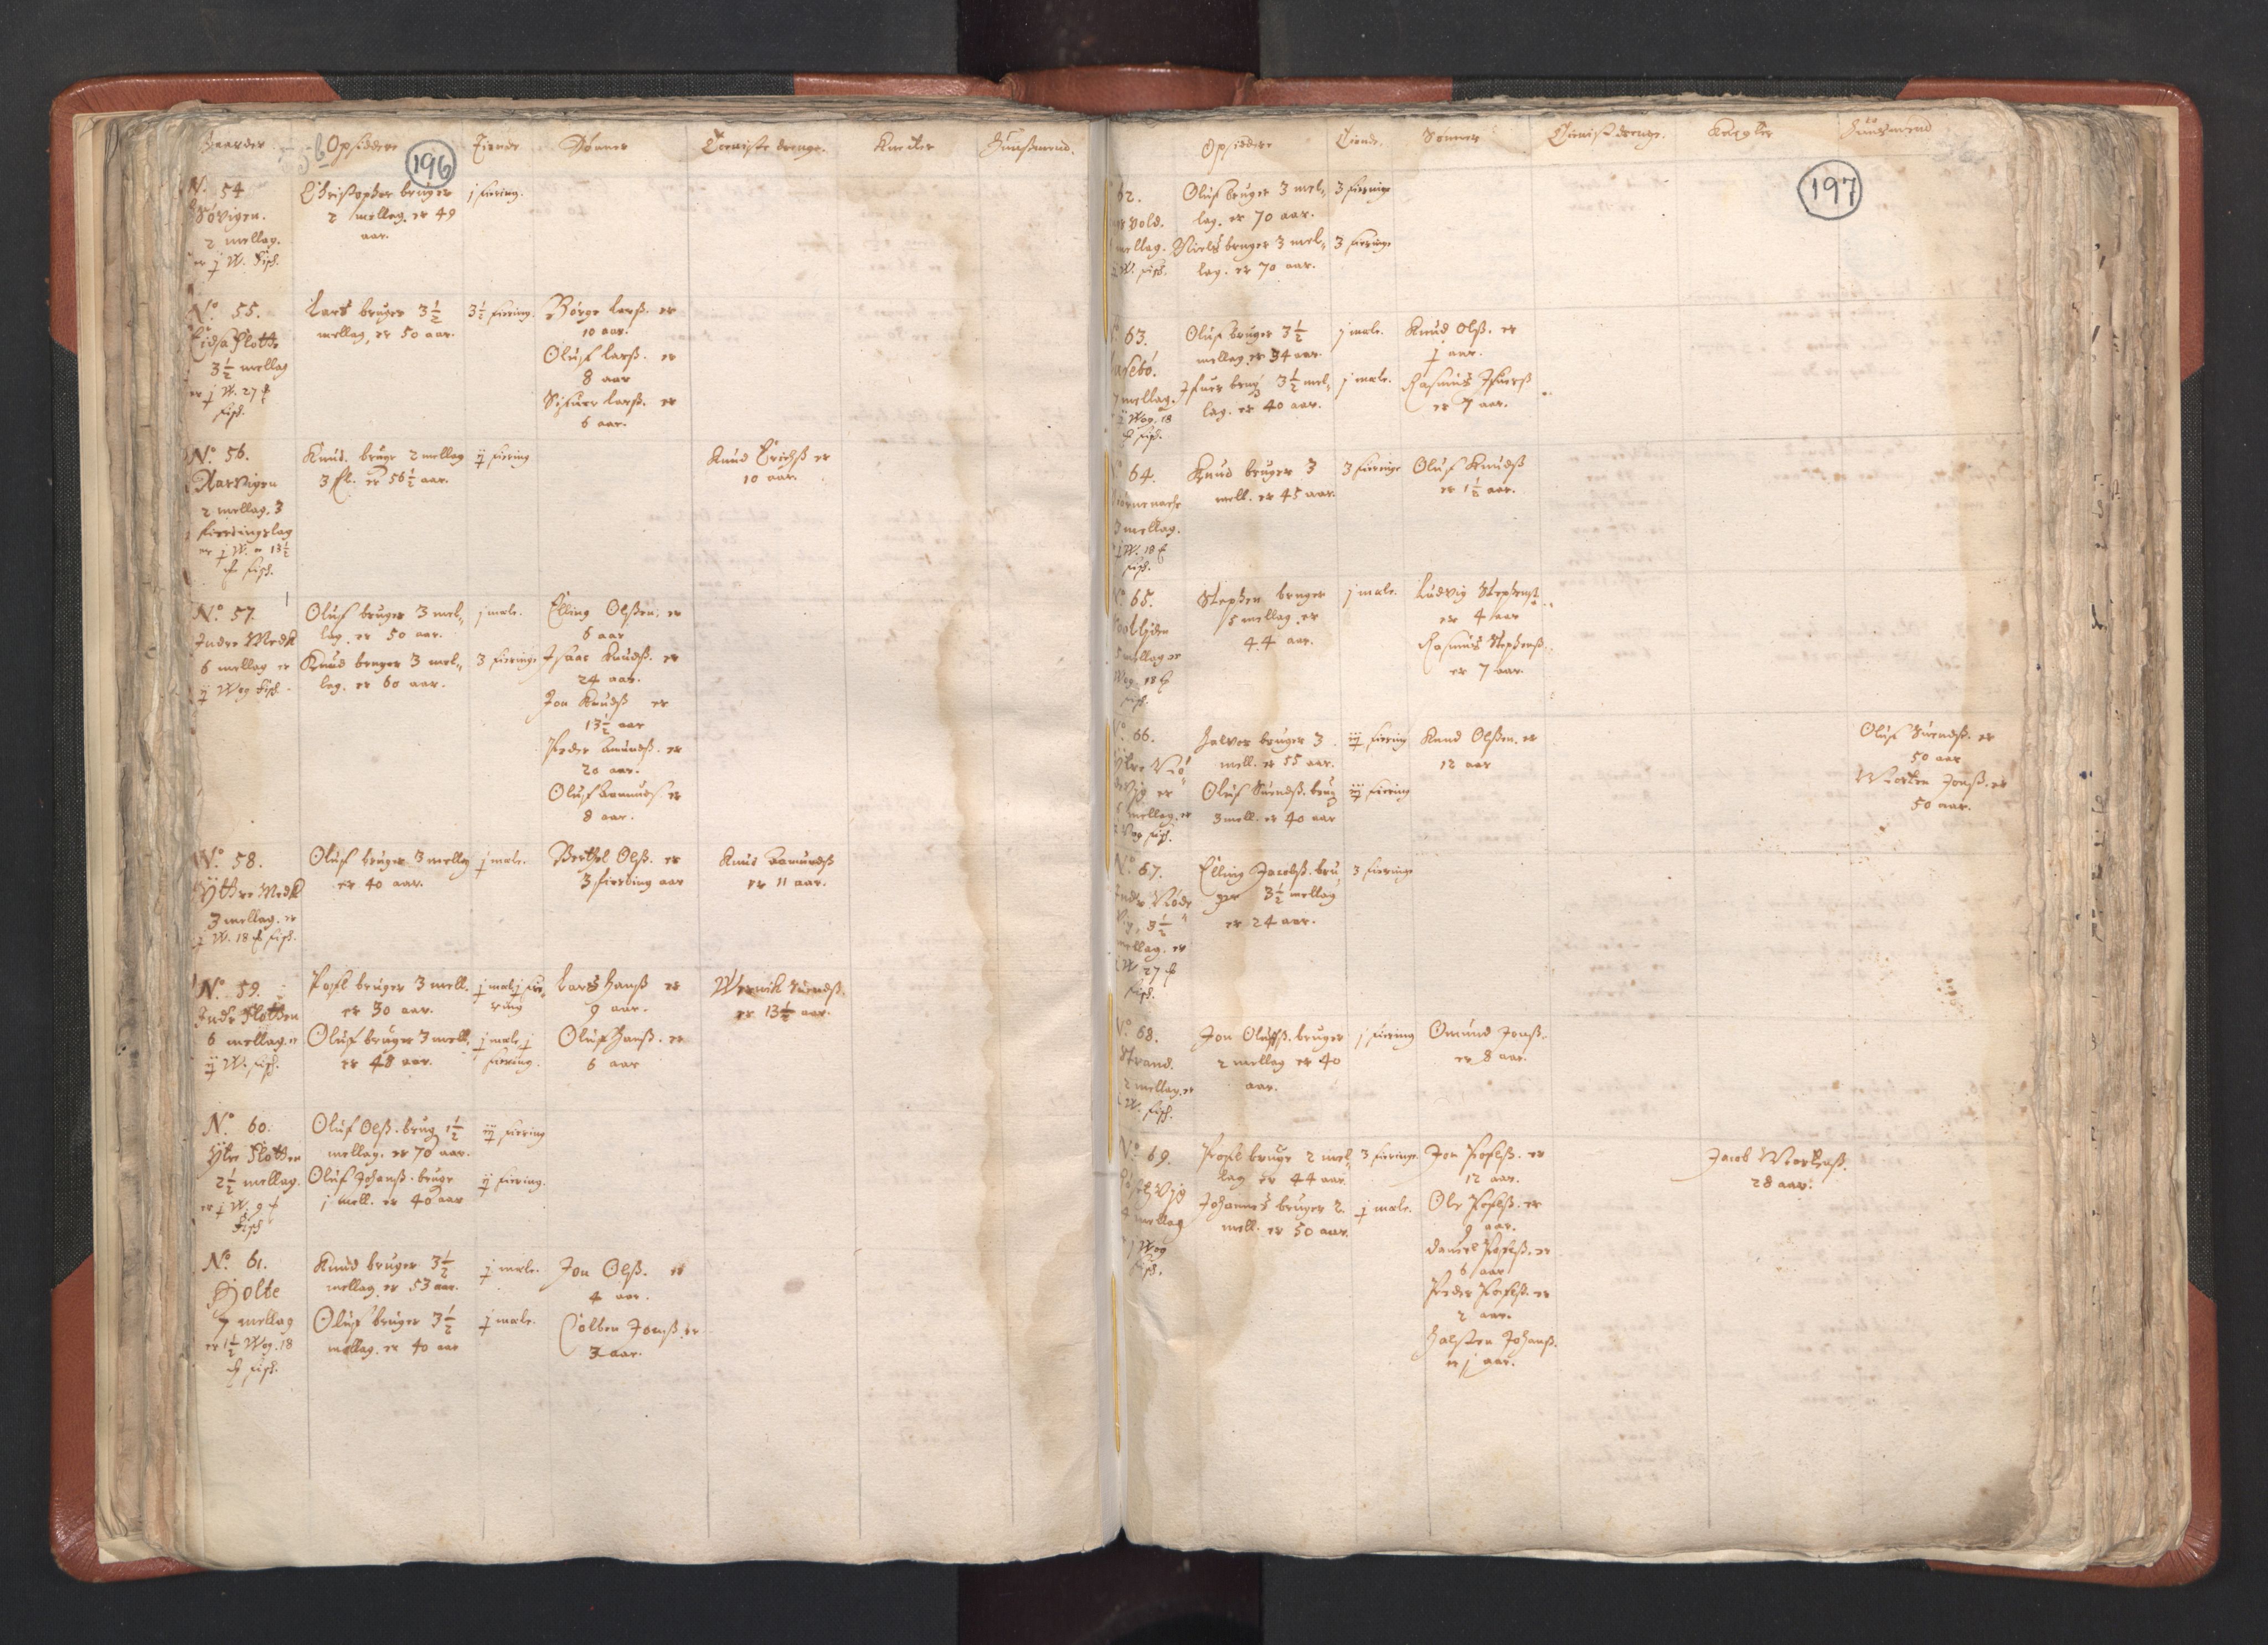 Gaarder. Opsiddere Tiende Sønner Tieniste drenge. Knechter Huussmend.
196
N. 54
Søvigen.
2 mellag.
er j W. Fisch.
Christopher bruger
2 mellag. er 49
aar.
j fiering.
No. 55.
Eidsa Slotte
3½ mellag
er j W. 27 
fisch.
Lars bruger 3½
mellag, er 50 aar.
3½ fiering.
Børge Larss. er
10 aar.
Oluf Larss. er
8 aar
Sifuer Larss. er
6 aar.
No. 56.
Aarvigen
2 mellag. 3
fierdingslag
er j W. 13½
fisch.
Knud. bruger 2 mellag
3 fl. er 56½ aar.
ij fiering
Knud Erichss er
10 aar.
No. 57.
Indre Medk
6 mellag er
ij Wog Fisch.
Oluf bruger 3 mel-
lag. er 50 aar.
Knud bruger 3 mel-
lag. er 60 aar.
j male.
3 fieringe
Elling Olssen. er
6 aar
Isaac Knudss. er
24 aar.
Jon Knudss er
13½ aar
Peder Amundss. er
20 aar.
Oluf Aamunds. er
8 aar.
No. 58.
Yttre Medk
3 mellag. er
j W. 18 fisch.
Oluf bruger 3 mellag
er 40 aar.
j male.
Berthel Olss. er
3 fierding aar
Knud Aamundss
er 11 aar.
No. 59.
Indr Slotten
6 mellag. er
ij W. fisch.
Pofl bruger 3 mell.
er 30 aar.
Oluf bruger 3 mell.
er 48 aar.
j male j fie-
ring
j male, j
fiering.
Lars Hanss er
9 aar.
Oluf Hanss. er
6 aar
Wernik Suendss.
er 13½ aar.
No. 60.
Ytre Slotten
2½ mellag.
er j W. 9
Fisch
Oluf Olss. brug 1½
mellag. er 70 aar.
Oluf Johanss. bruge
j mell. er 40 aar
iij fiering
ij fiering.
No. 61.
Holte
7 mellag
er 1½ Wog. 18
fisch.
Knud bruger 3½
mellag. er 53 aar.
Oluf bruger 3½
mellag. er 40 aar
j male.
j male.
Jon Olss. er
4 aar.
Colben Jonss. er
3 aar.
Opsiddere Tiende. Sønner Tienist drenge. Knegter Huusmend
197
62.
vold.
mellag.
W. fisch.
Oluf bruger 3 mel-
lag. er 70 aar.
Niels bruger 3 mel-
lag. er 70 aar.
3 fieringe
3 fieringe
63.
sebø.
7 mellag.
Wog. 18
fisch.
Oluf bruger 3½
mellag er 34 aar.
Ifuer brug 3½ mel-
lag. er 40 aar.
j male.
j male.
Knud Olss. er
j aar.
Rasmus Ifuerss
er 7 aar.
64.
3 mellag.
j W. 18
fisch.
Knud bruger 3
mell. er 45 aar.
3 fieringe
Oluf Knudss
er 1½ aar.
65.
5 mellag er
Wog. 18
fisch.
Stephen bruger
5 mellag. er
44 aar.
j male.
Ludvig Stephenss
er 4 aar
Rasmus Stephenss.
er 7 aar.
No. 66.
Ytre Nø
mellag. er
Wog fisch.
Halvor bruger 3
mell. er 55 aar.
Oluf Suendss. brug
3 mell. er 40 aar
iij fiering
iij fiering
Knud Olssen. er
12 aar
Oluf Suendss. er
50 aar
Morten Jonss. er
50 aar.
No. 67.
Indr Nøde
vig, 3½
mellag. er
W 27
fisch.
Elling Jacobss. bru-
ger 3½ mellag
er 24 aar.
3 fieringe
No. 68.
Strand.
2 mellag. er
W. fisch.
Jon Olufss. bruger
2 mellag er 40
aar.
j fiering
Omund Jonss.
er 8 aar.
No. 69.
4 mellag
j Wog
fisch.
Pofl bruger 2 mel-
lag er 44 aar
Johannes bruger 2.
mell. er 50 aar.
3 fieringe.
j male.
Jon Poflss. er
12 aar.
Ole Poflss. er
9 aar.
Daniel Poflss. er
6 aar
Peder Poflss. er
2 aar.
Halsten Johanss.
er j aar.
Jacob Mortenss.
28 aar.